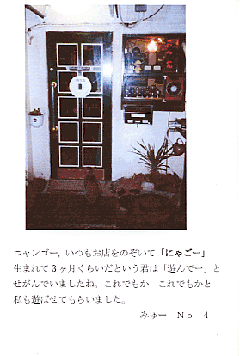 ニャンゴー、いつもお店をのぞいて「にゃごー」
生まれて3ヶ月くらいだという君は「遊んでー」と
せがんでいましたね。これでもか これでもかと
私も遊ばせてもらいました。
みゅー No 4